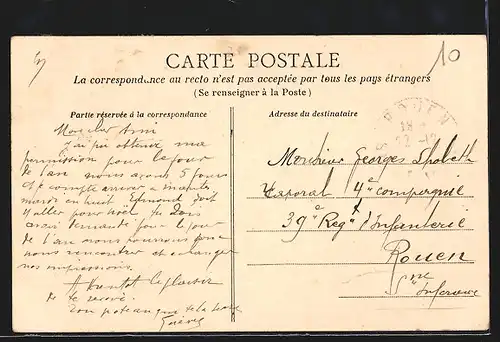 CARTE POSTALE
La correspondance au recto n'est pas acceptée par tous les pays étrangers
(Se renseigner à la Poste)
Partie réservée à la correspondance
Adresse du destinataire
10
ROUEN
Mon cher Ami
J'ai pu obtenir ma
permission pour le jour
de l'an nous avons 5 jours
et je compte arriver à
mardi en huit Edmond doit
y aller pour Noël. Tu dois
avoir demandé pour le jour
de l'an nous pourrons
nous rencontrer et échanger
nos impressions.
A bientôt le plaisir
de te revoir.
Ton pote qui te la serre
Monsieur Georges
Caporal 4e compagnie
39e Regt d'Infanterie
Rouen
Sne Inférieure